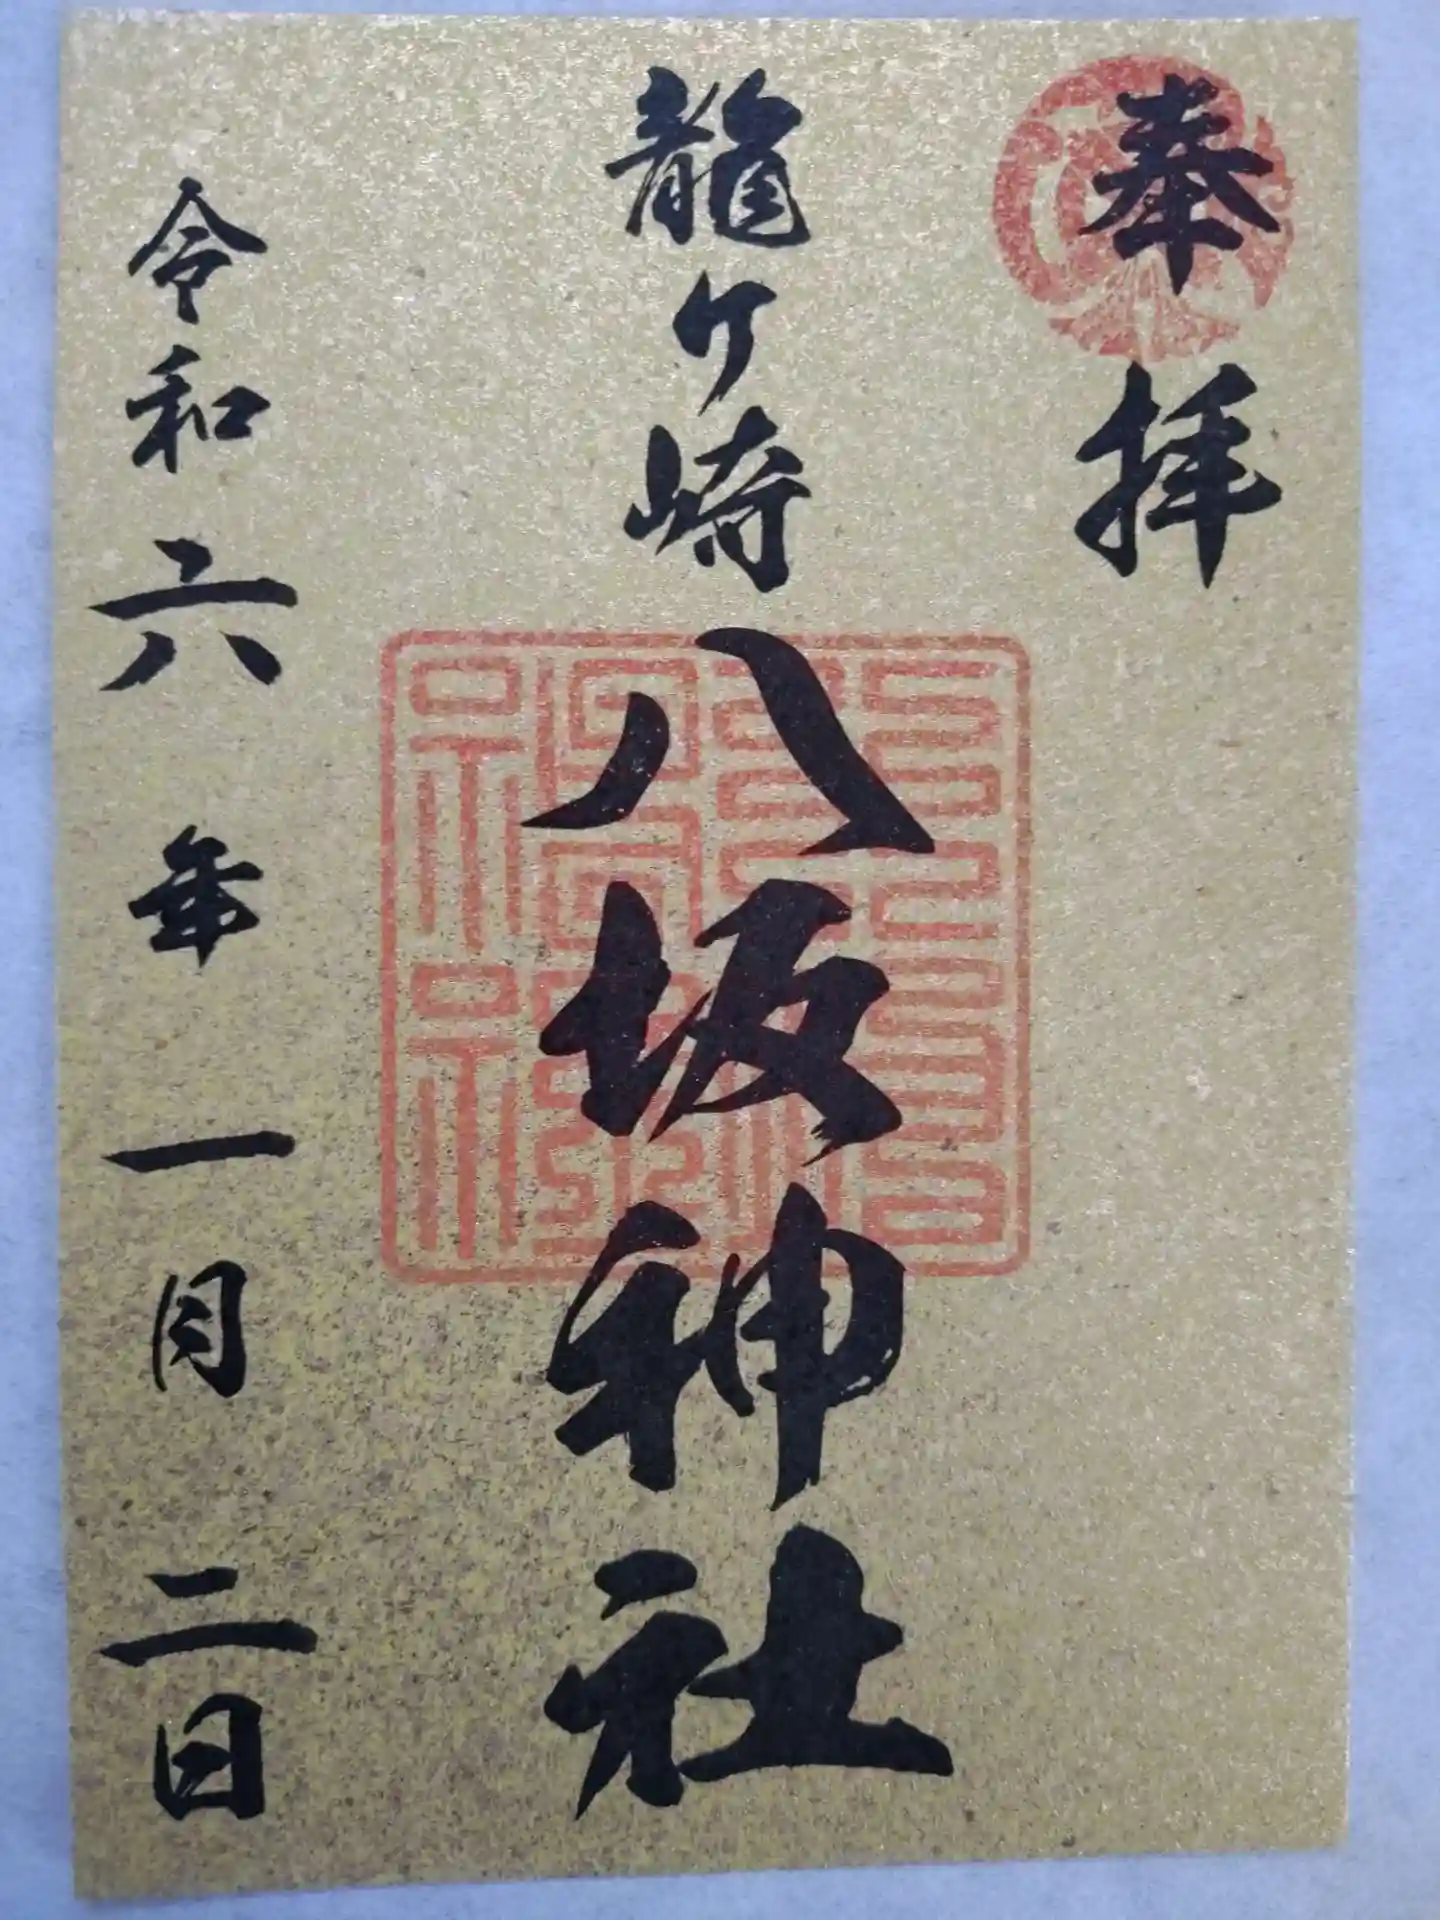 奉拝
龍ケ崎八坂神社
令和六年一月二日